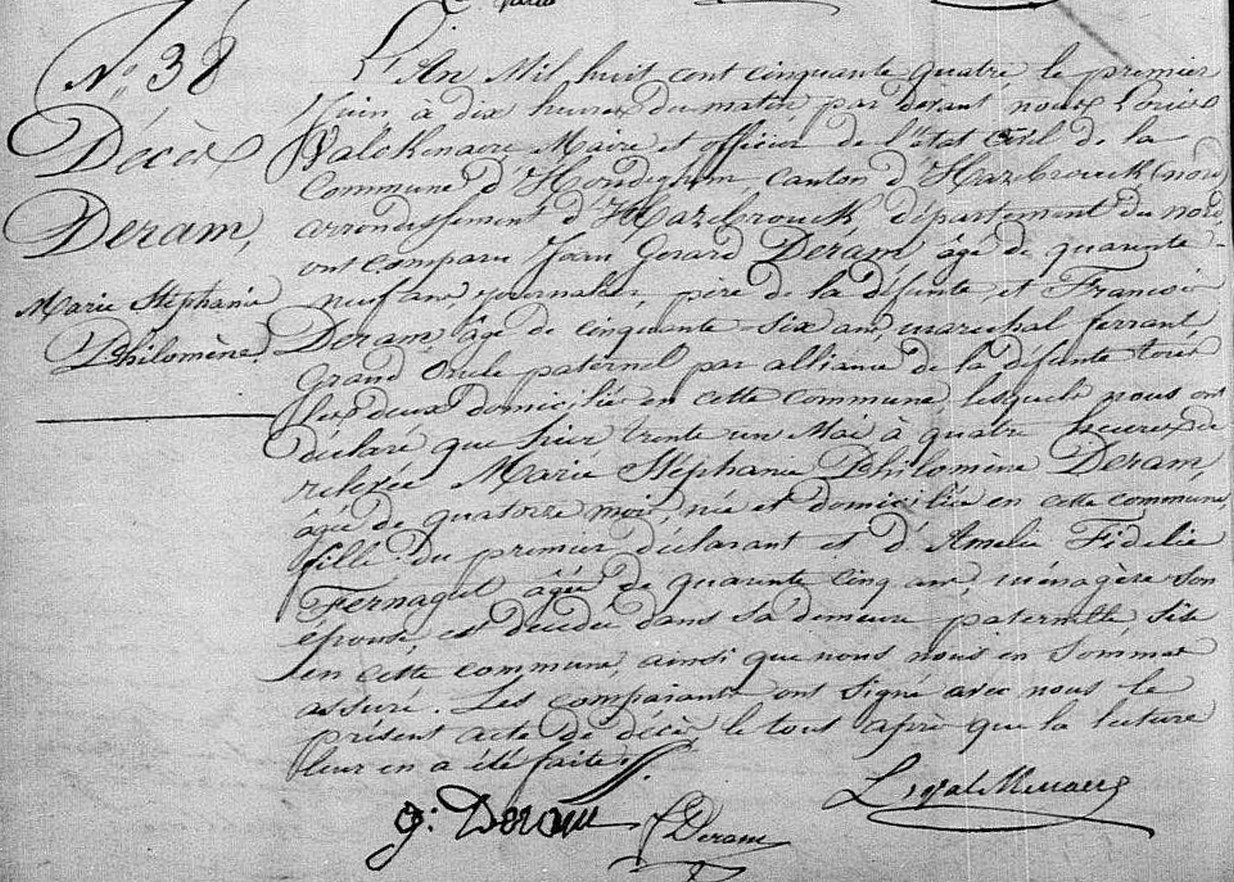 N.º 38
Décès
Deram,
Marie Stéphanie
Philomène.
L'An Mil huit cent cinquante quatre, le premier
Juin à dix heures du matin, par devant nous Louis
Valckenaere Maire et officier de l'état Civil de la
Commune d'Hondeghem, canton d'Hazebrouck (nord)
arrondissement d'Hazebrouck, département du nord,
ont comparu Jean Gerard Deram, âgé de quarante-
neuf ans, journalier, père de la défunte, et Francois
Deram, âgé de cinquante-six ans, marechal ferrant,
Grand Oncle paternel par alliance de la défunte tous
les deux domiciliés en cette commune, lesquels nous ont
déclaré que hier trente un Mai à quatre heures de
relevée Marie Stéphanie Philomène Deram,
âgée de quatorze mois, née et domiciliée en cette commune,
fille du premier déclarant et d'Amelie Fidelie
Fernagut âgée de quarante cinq ans, ménagère son
épouse, est décédée dans sa demeure paternelle, sise
en cette commune, ainsi que nous nous en sommes
assuré. Les comparants ont signé avec nous le
présent acte de décès le tout après que la lecture
leur en a été faite.
g: Deram
f Deram
L. valckenaere